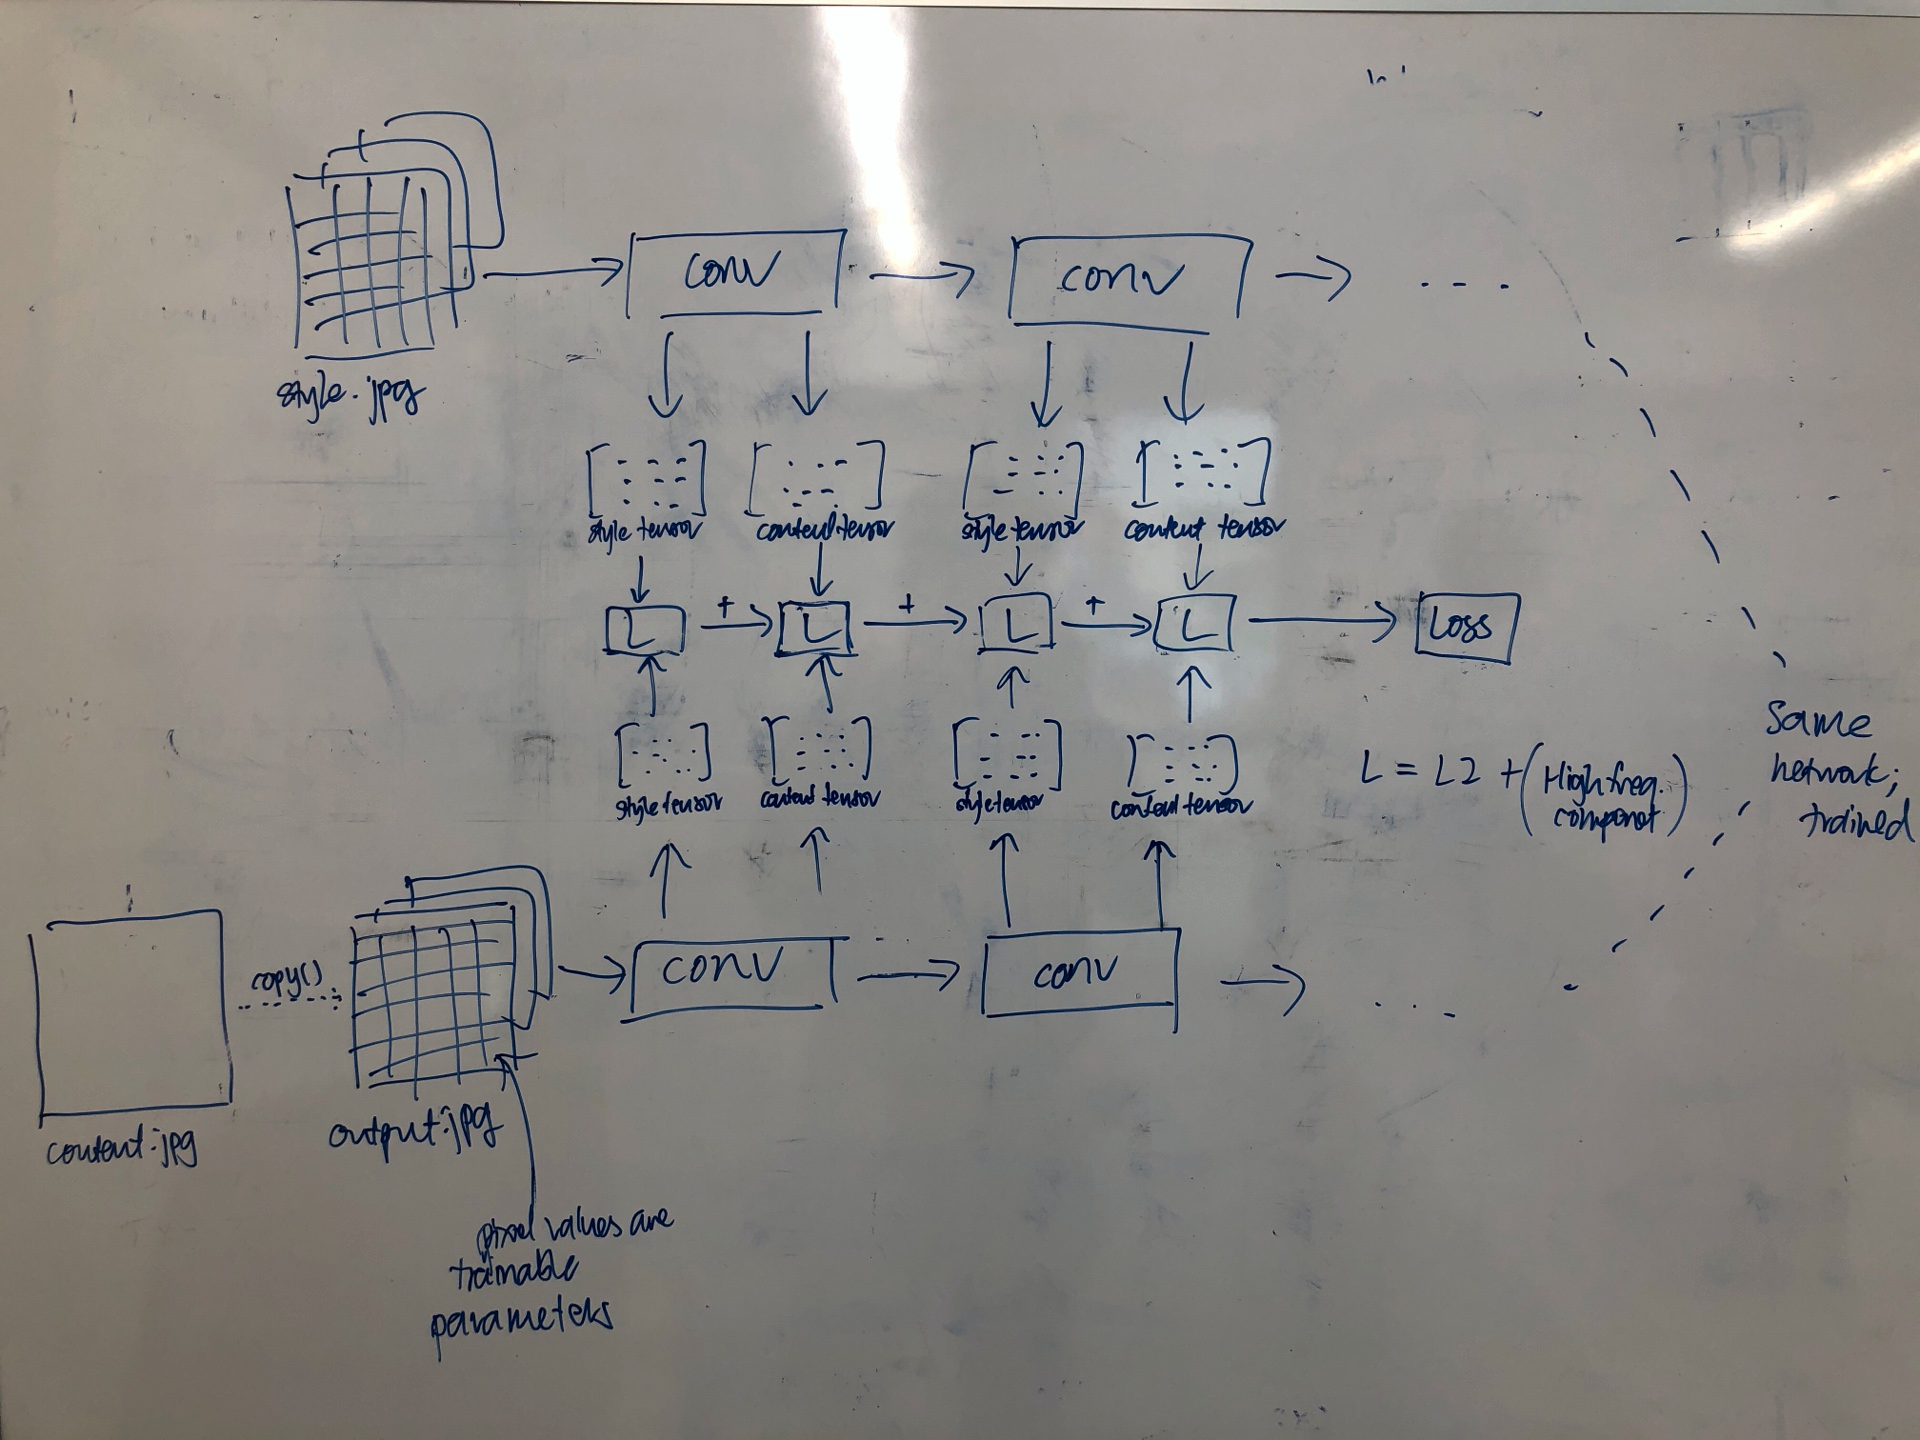 conv
conv
...
style.jpg
style tensor
content tensor
style tensor
content tensor
L
+
L
+
L
+
L
Loss
style tensor
content tensor
style tensor
content tensor
L = L2 + (High freq.
componet)
same
network;
trained
copy()
conv
conv
...
content.jpg
output.jpg
pixel values are
trainable
parameters